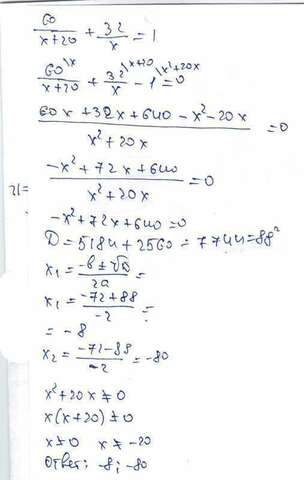 60/(x+20) + 32/x = 1
60\x/(x+20) + 32\x+20/x - 1\x²+20x = 0
(60x+32x+640-x²-20x)/(x²+20x) = 0
(-x²+72x+640)/(x²+20x) = 0
-x²+72x+640=0
D=5184+2560=7744=88²
x₁=(-b±√D)/2a=
x₁=(-72+88)/-2=
= -8
x₂=(-72-88)/-2=-80
x²+20x≠0
x(x+20)≠0
x≠0 x≠-20
Ответ: -8; -80